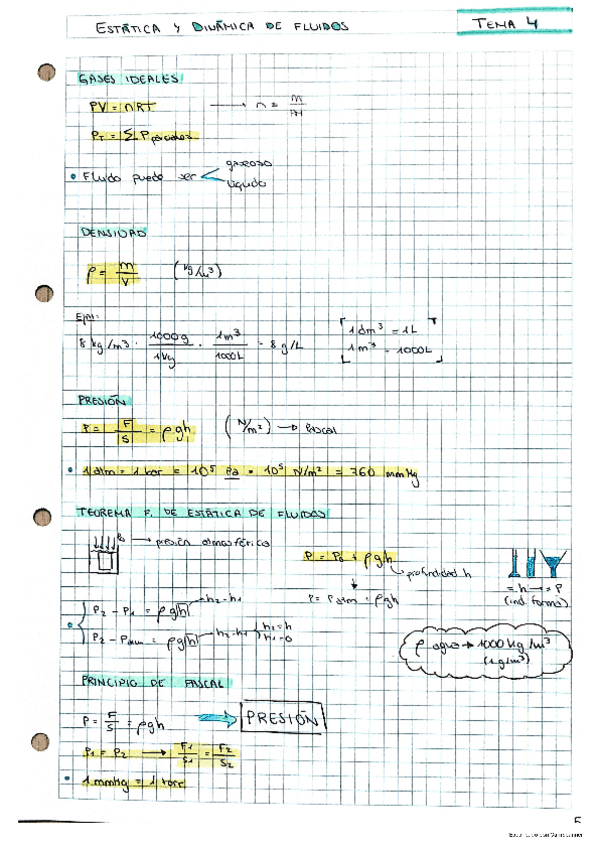 ESTÁTICA Y DINÁMICA DE FLUIDOS
TEMA 4
GASES IDEALES
PV = nRT → n = m/M
P_T = Σ P parciales
• Fluido puede ser < gaseoso
líquido
DENSIDAD
ρ = m/V (kg/m³)
Ejm:
8 kg/m³ · 1000g/1kg · 1m³/1000L = 8 g/L
1 dm³ = 1L
1 m³ = 1000L
PRESIÓN
P = F/S = ρgh (N/m²) → Pascal
• 1 atm = 1 bar = 10⁵ Pa = 10⁵ N/m² = 760 mmHg
TEOREMA F. DE ESTÁTICA DE FLUIDOS
P₀ → presión atmosférica
P = P₀ + ρgh
→ profundidad h
P = P atm + ρgh
= h → = P
(ind. forma)
• P₂ - P₁ = ρg|h| → h₂-h₁
P₂ - Patm = ρg|h| → h₂-h₁ } h₁=h
h₁=0
ρ agua → 1000 kg/m³
(1g/m³)
PRINCIPIO DE PASCAL
P = F/S = ρgh ⇒ PRESIÓN
P₁ = P₂ → F₁/S₁ = F₂/S₂
• 1 mmHg = 1 torr
5